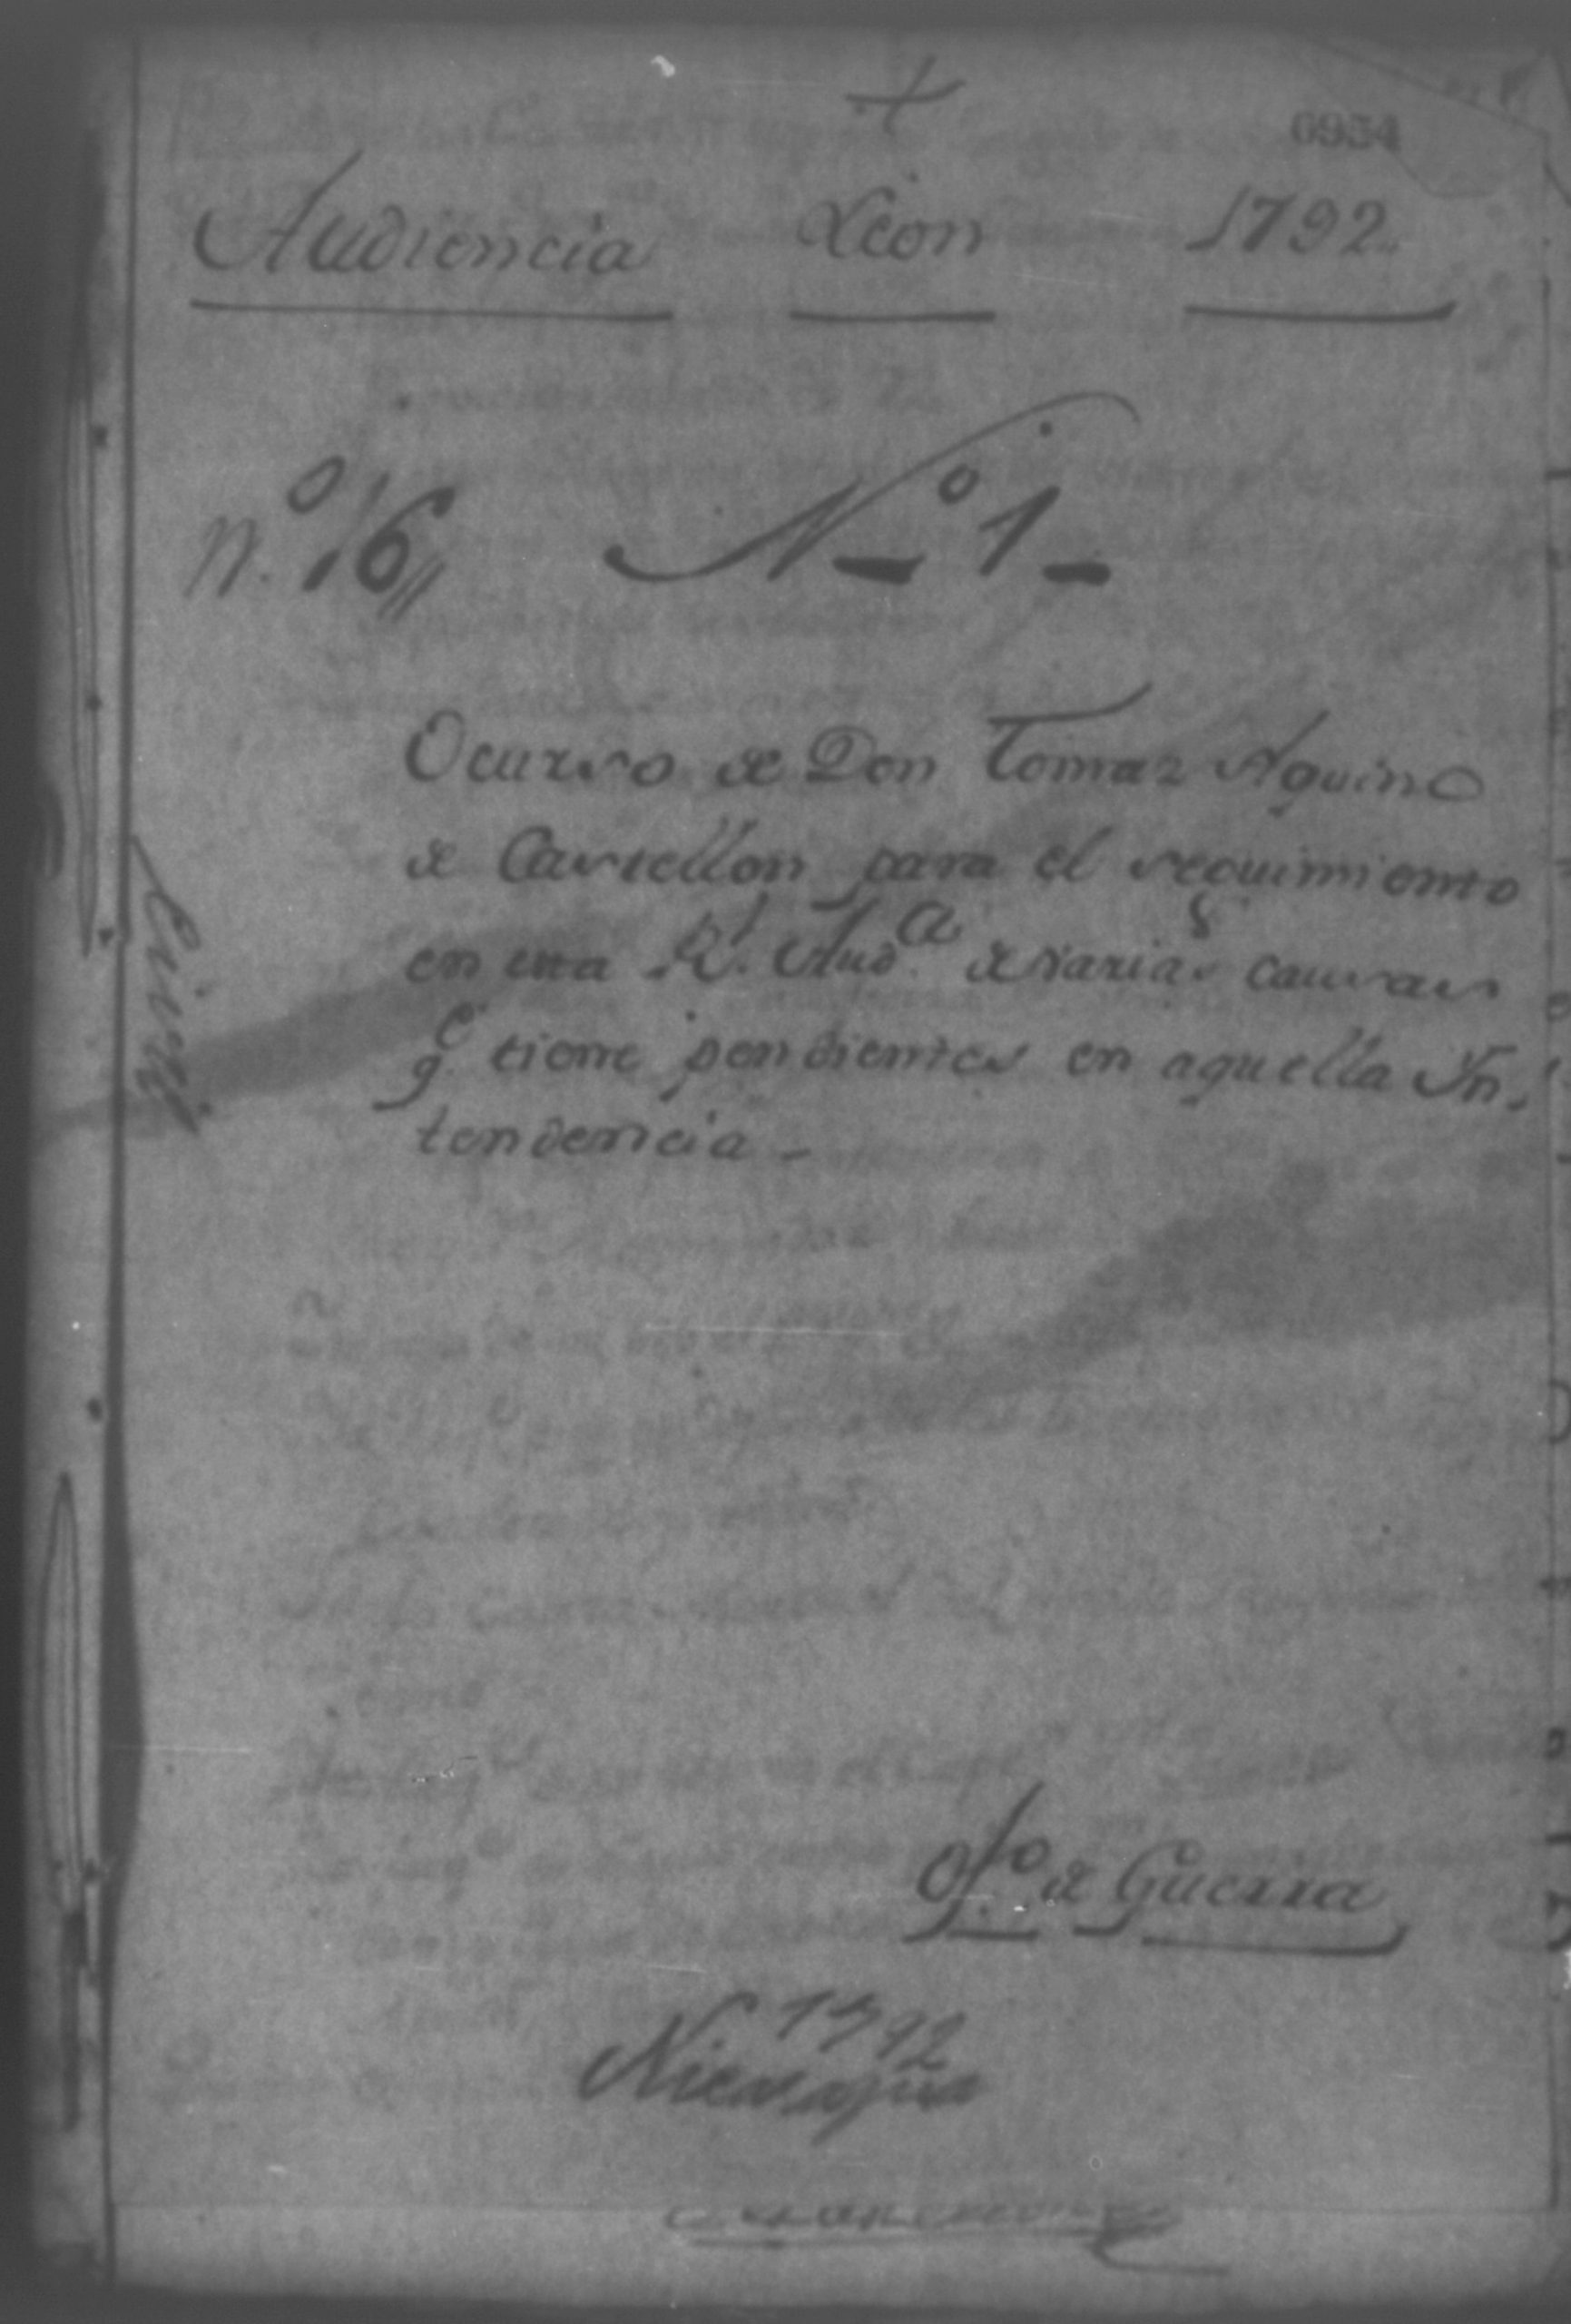 +
0954
Audiencia Leon 1792
N.º 16 Nº 1
Ocurso de Don Tomas Aquino
de Castellon para el seguimiento
en esta Rl. Auda. de varias causas
qe. tiene pendientes en aquella In-
tendencia -
Civil
Ofo. de Guerra
1792
Nicaragua